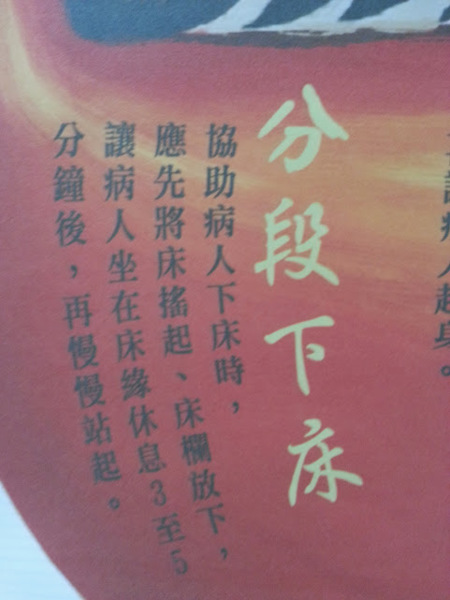 病人起身。
分段下床
協助病人下床時，
應先將床搖起、床欄放下，
讓病人坐在床緣休息3至5
分鐘後，再慢慢站起。